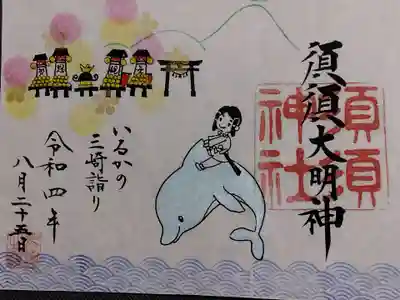 須須大明神
須須
神社
いるかの
三崎詣り
令和四年
八月二十五日